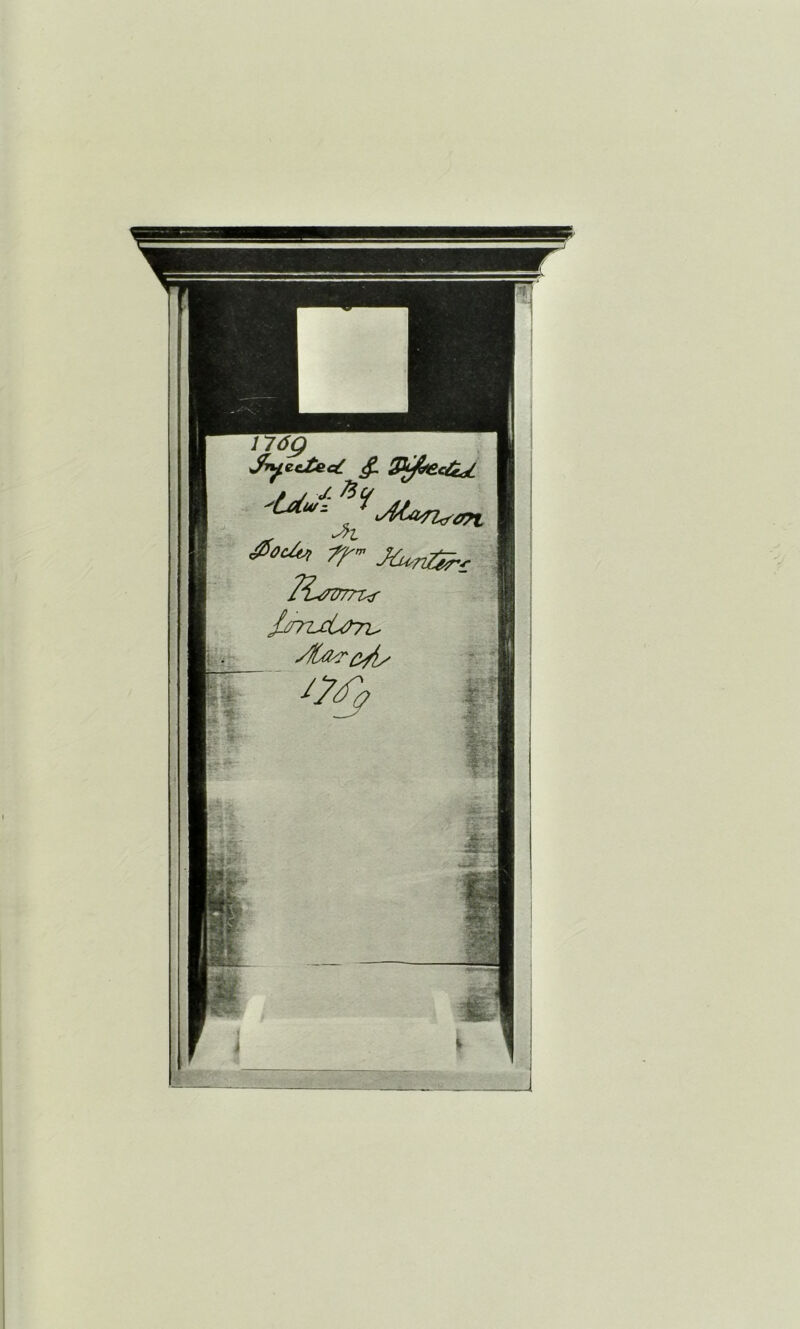 1769
Injected & Dissected
By Manson
In
Doctr Wm Hunters
Rooms
London
March
1769